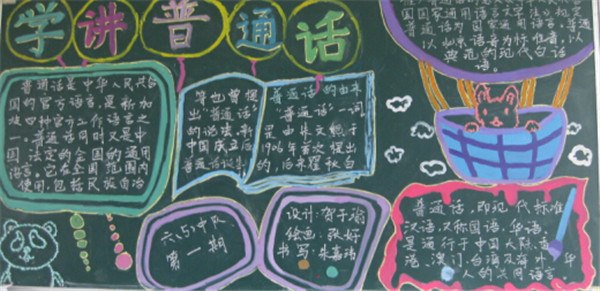 学讲普通话
普通话是中华人民共和
国的官方语言,是新加
坡四种官方工作语言之
一。普通话同时又是中
国法定的全国的通用
语言。它在全国范围内
使用,包括民族自治
等也曾提
出"普通话"
的说法。新
中国成立后
普通话
"普通话"的由来
"普通话"一词
是由朱文熊于
1906年首次提出
的,后来瞿秋白
国家通用语言,普通
以北京语音为标准音,以
典范的现代白话
语。
六(5)中队
第一期
设计:贺子
绘画:张好
书写:朱嘉
普通话,即现代标准
汉语,又称国语、华语,
是通行于中国大陆、香
港、澳门、台湾及海外华
人的共同语言。